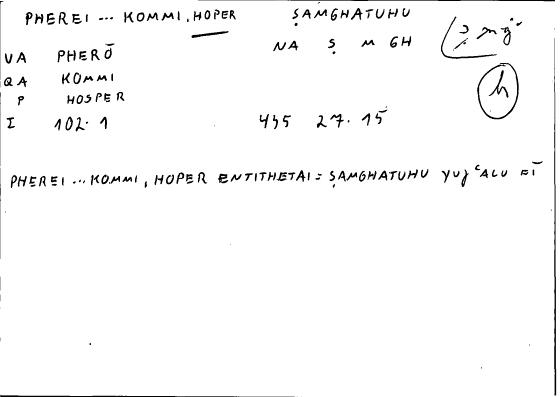 PHEREI ... KOMMI, HOPER ṢAMGHATUHU
VA PHERŌ NA Ṣ M GH
QA KOMMI
P HOSPER
I 102.1 435 27.15
h
PHEREI ... KOMMI, HOPER ENTITHETAI = ṢAMGHATUHU YUJʿALU FĪ